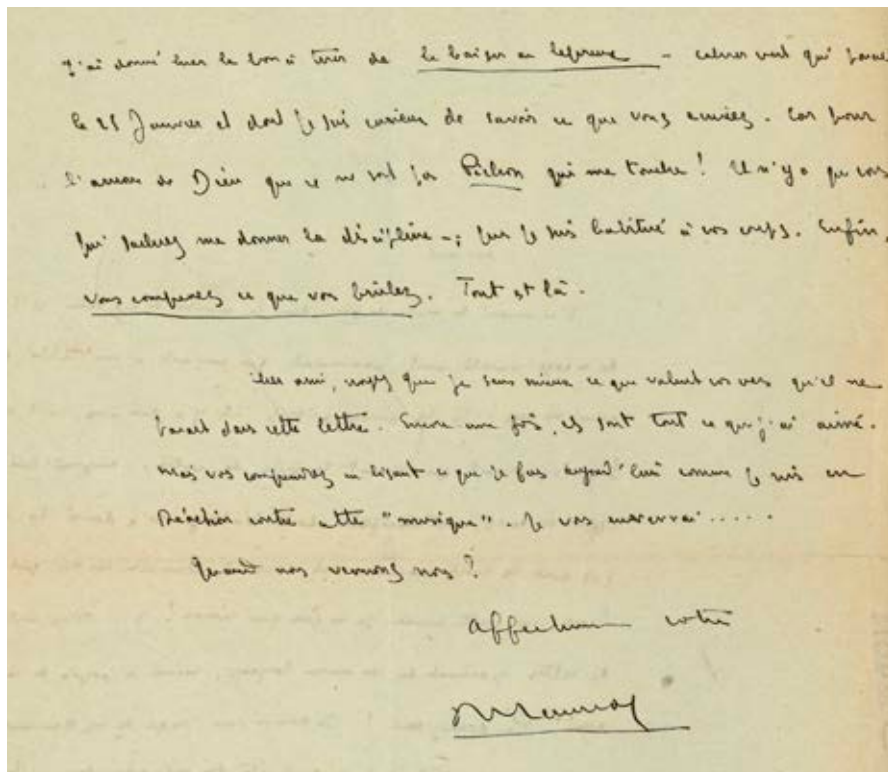 J'ai donné hier le bon à tirer de le baiser au lépreux – cahier vert qui paraît
le 25 Janvier et dont je suis curieux de savoir ce que vous Car pour
l'amour de Dieu que ce ne soit pas qui me touche ! Il n'y a que vous
qui sachiez me donner la discipline – ; puis je suis habitué à vos coups. Enfin,
vous comprenez ce que vous brûlez. Tout est là.
Cher ami, voyez que je sens mieux ce que valent vos vers qu'il ne
paraît dans cette lettre. Encore une fois, ils sont tout ce que j'ai aimé.
Mais vous comprendrez en lisant ce que je fais aujourd'hui comme je suis en
Réaction contre cette "musique". Je vous enverrai.....
Quand nous verrons nous ?
Affectueusement votre